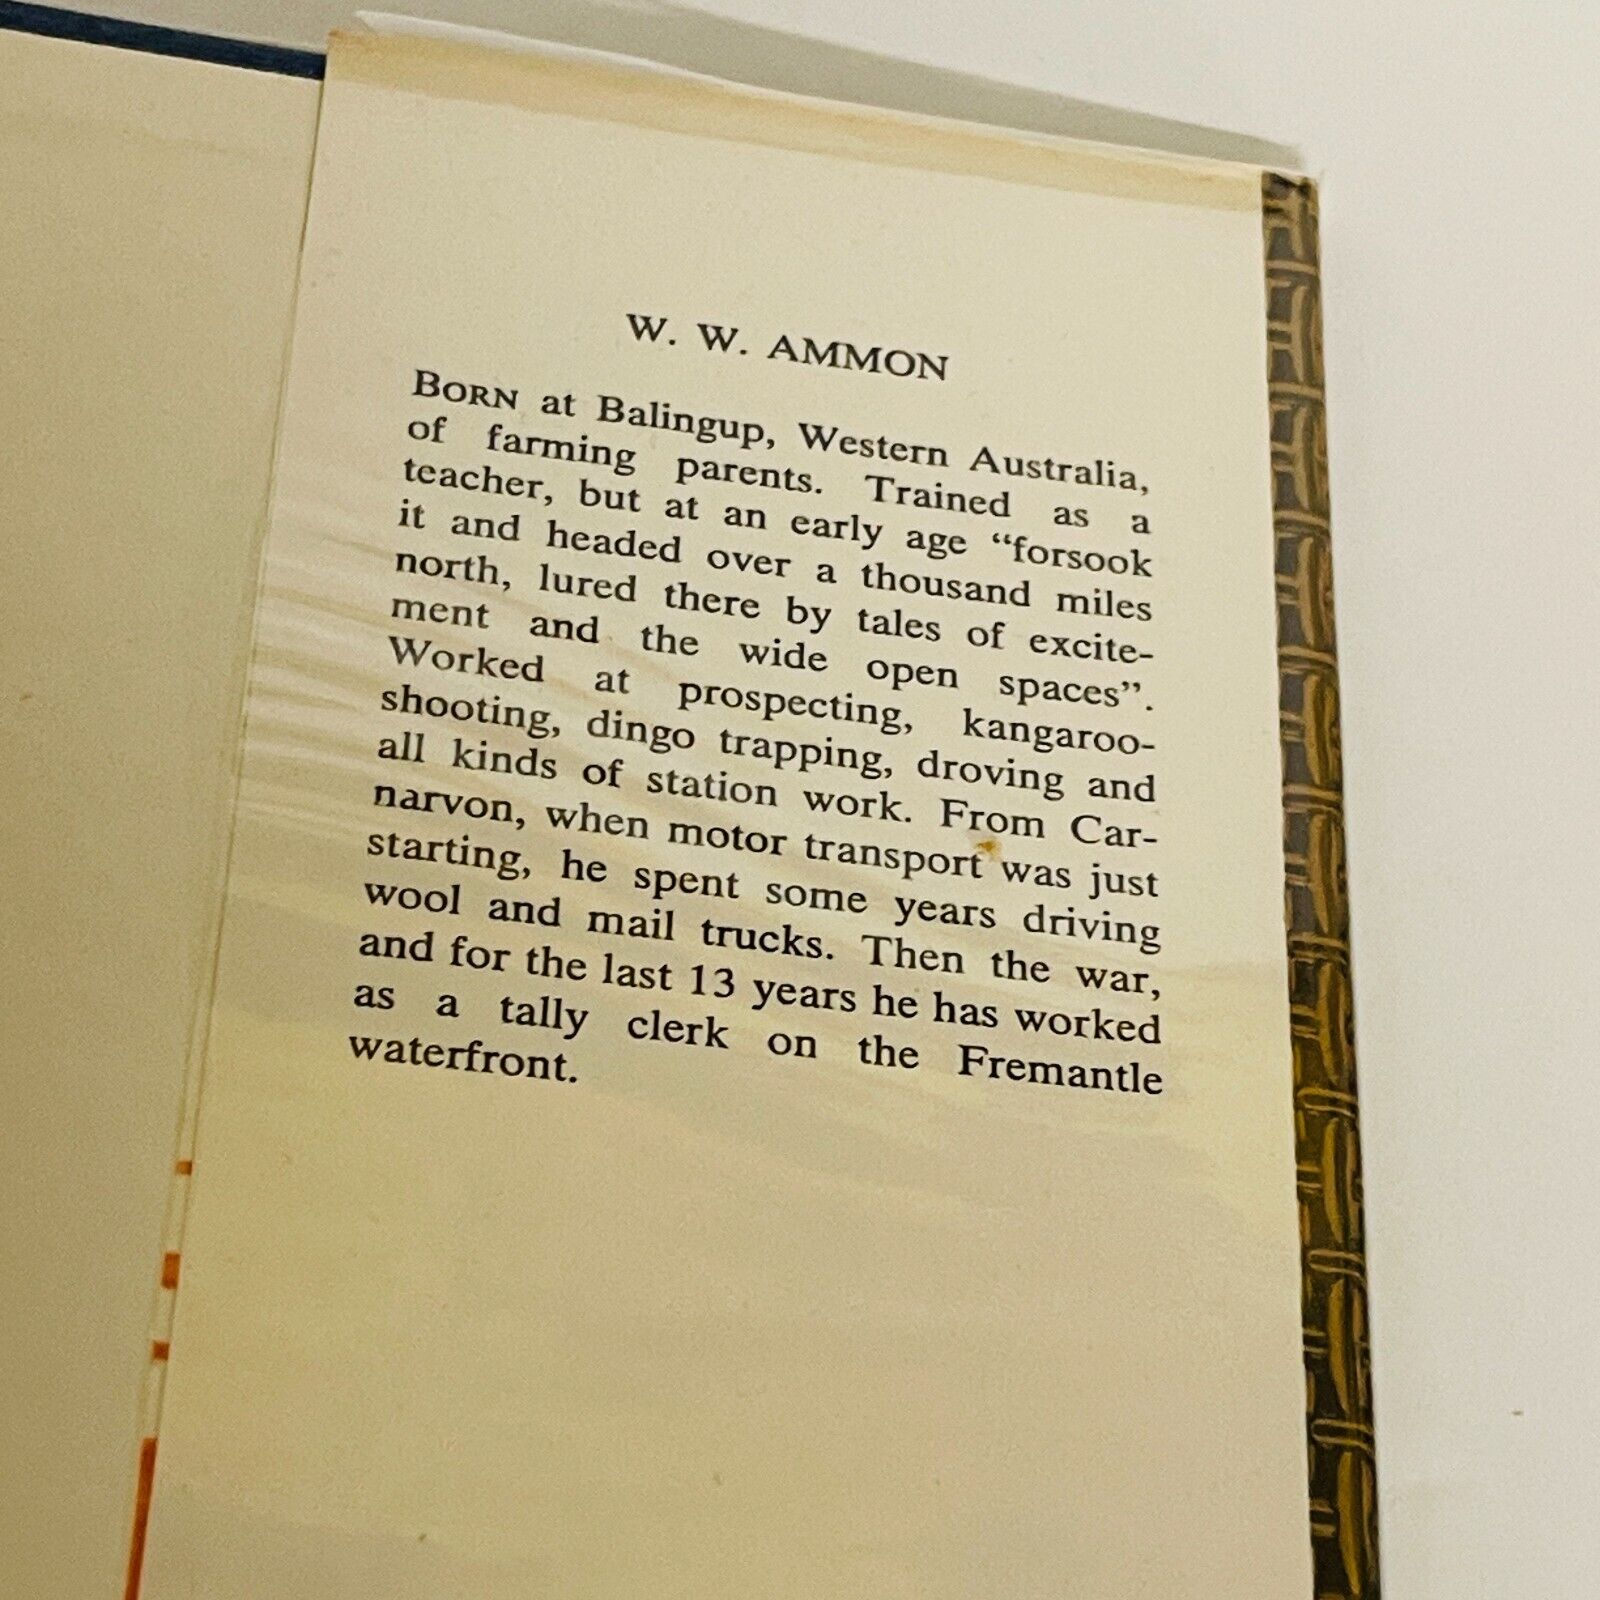 W. W. AMMON
BORN at Balingup, Western Australia,
of farming parents. Trained as a
teacher, but at an early age “forsook
it and headed over a thousand miles
north, lured there by tales of excite-
ment and the wide open spaces”.
Worked at prospecting, kangaroo-
shooting, dingo trapping, droving and
all kinds of station work. From Car-
narvon, when motor transport was just
starting, he spent some years driving
wool and mail trucks. Then the war,
and for the last 13 years he has worked
as a tally clerk on the Fremantle
waterfront.